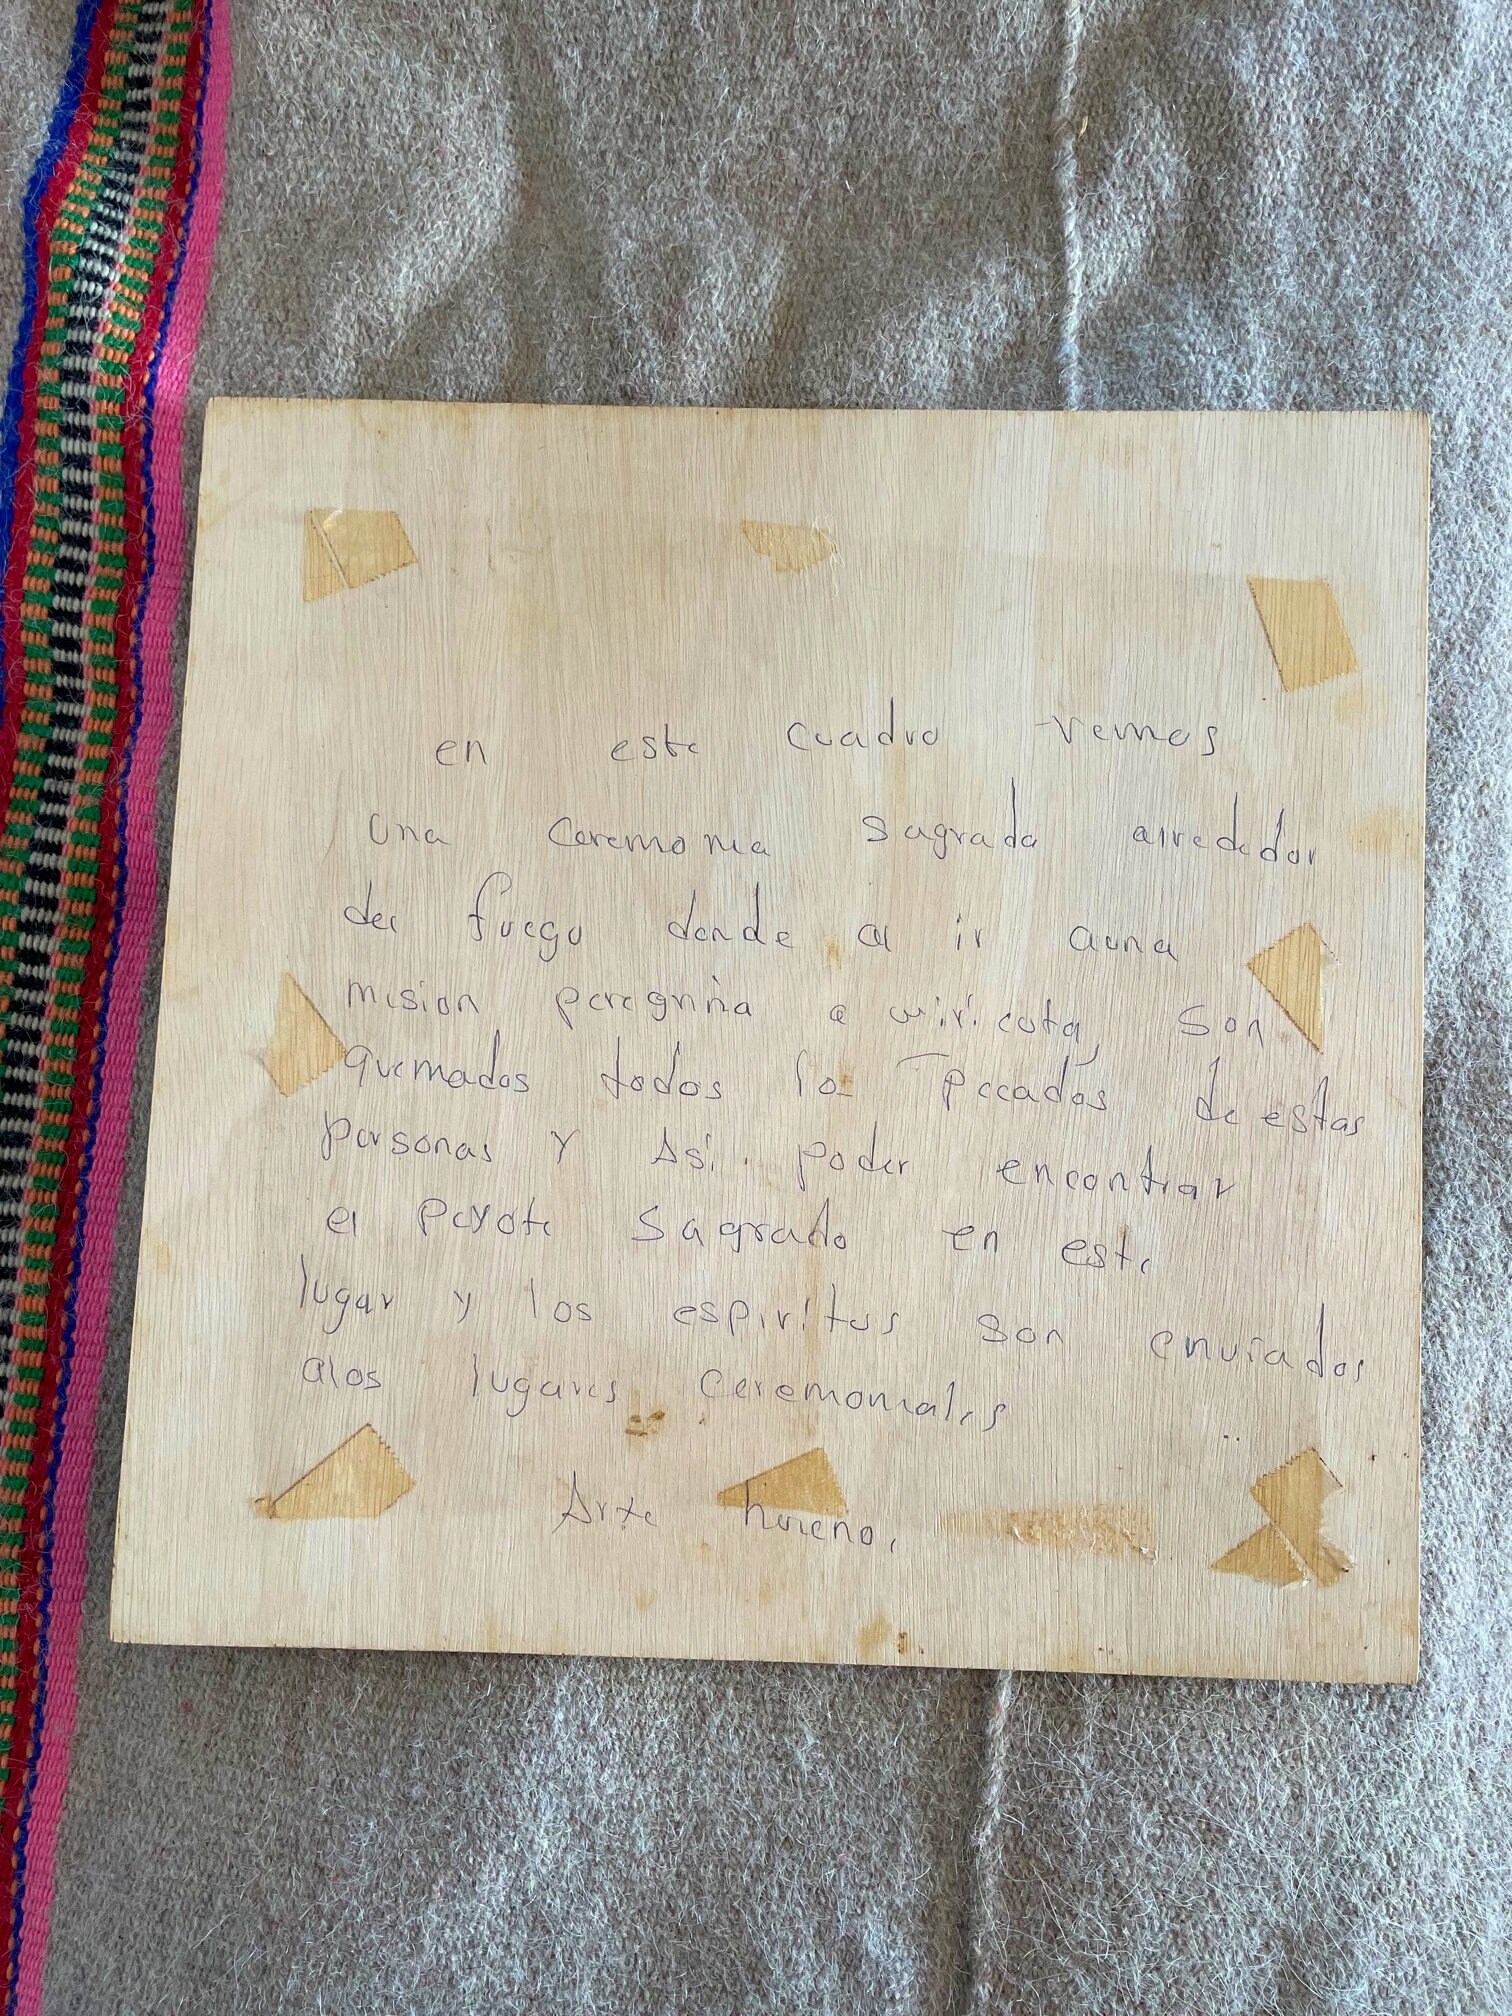 en este cuadro vemos
una ceremonia sagrada alrededor
del fuego donde al ir auna
mision peregrina a wiricuta, son
quemados todos lo pecados de estas
personas y Asi. poder encontrar
el peyote sagrado en este
lugar y los espiritus son enviados
alos lugares ceremoniales
Arte